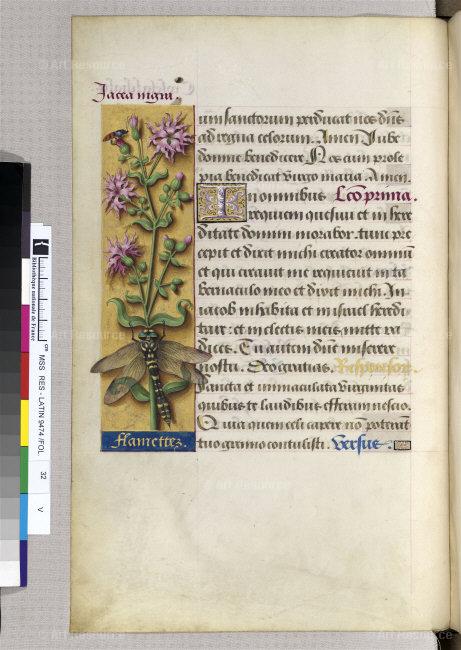 Jacea nigra.
um sanctorum perducat nos dn̄s
ad regna celorum. Amen. Jube
domne benedicere. Nos cum prole
pia benedicat virgo maria. Amen.
In omnibus Lc̄o prima.
requiem quesiui et in here
ditate domini morabor. tunc pre
cepit et dixit michi creator omniū
et qui creauit me requieuit in ta
bernaculo meo et dixit michi. In
iacob inhabita et in israel heredi
tare: et in electis meis mitte ra
dices. Tu autem dn̄e miserere
nostri. Deo gratias. Responsor.
Sancta et immaculata virginitas
quibus te laudibus efferam nescio.
Quia quem celi capere nō poterāt
tuo gremio contulisti. Versus.
flamettez.
Bibliothèque nationale de France
MSS RES - LATIN 9474 /FOL
32
V
© Art Resource